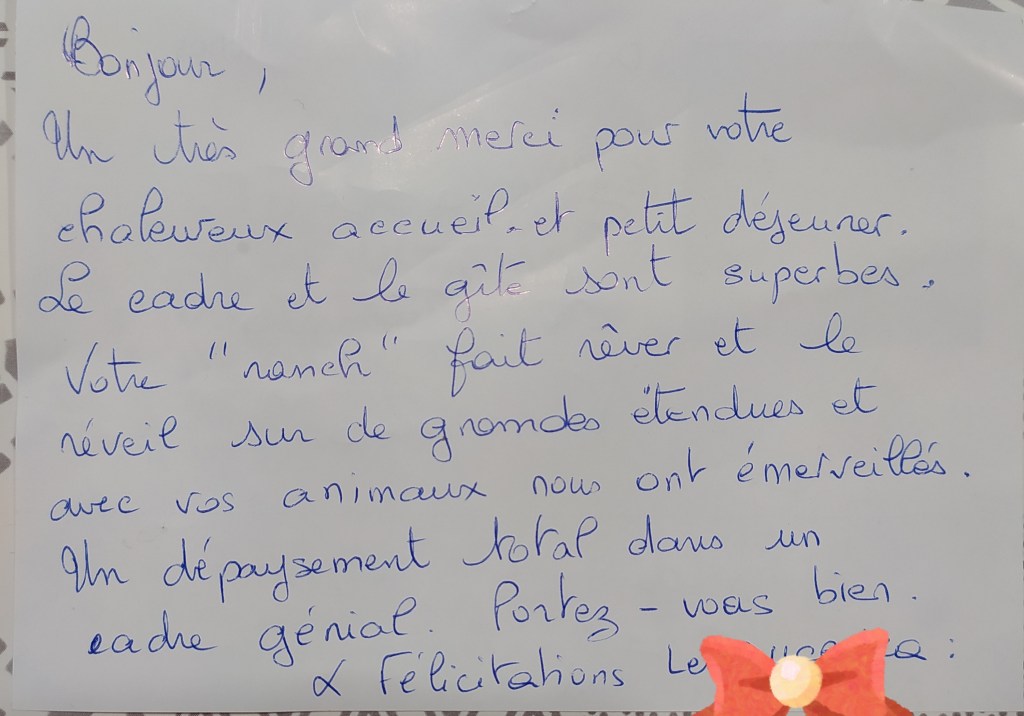 Bonjour,
Un très grand merci pour votre
chaleureux accueil et petit déjeuner.
Le cadre et le gîte sont superbes.
Votre "ranch" fait rêver et le
réveil sur de grandes étendues et
avec vos animaux nous ont émerveillés.
Un dépaysement total dans un
cadre génial. Portez-vous bien.
& Félicitations